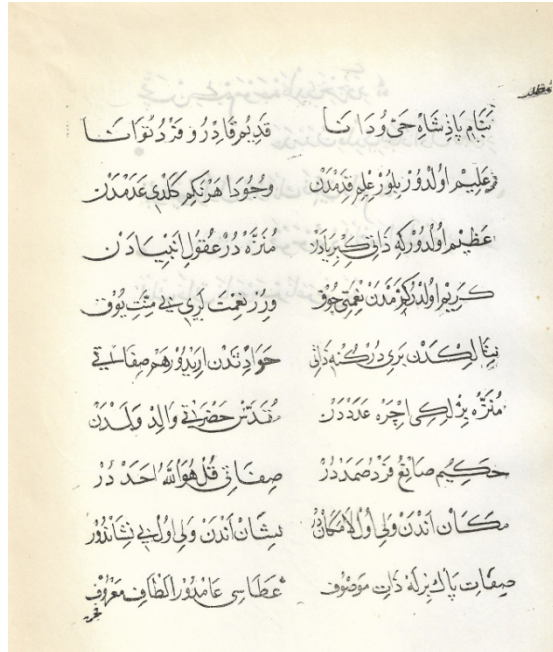 بنام پادشاه حی و دانا قدیم و قادر و فرد و توانا
علیم اولدور بلور علم قدمدن وجودا هر نکم کلدی عدمدن
عظیم اولدور که ذاتی کبریادن منزه در عقول انبیادن
کریم اولدر کرمدن نعمتی چوق ویرر نعمت لری بی منتی یوق
بری در کنه ذاتی حوادثدن اریدور هم صفاتی
منزه برلکی اچره عدددن مقدس حضرتی والد ولددن
حکیم صانع فرد صمددر صفاتی قل هو الله احد در
مکان اندن ولی اول لامکاندر نشان اندن ولی اول بی نشاندور
صفات پاک برله ذات موصوف عطاسی عامدور الطاف معروف